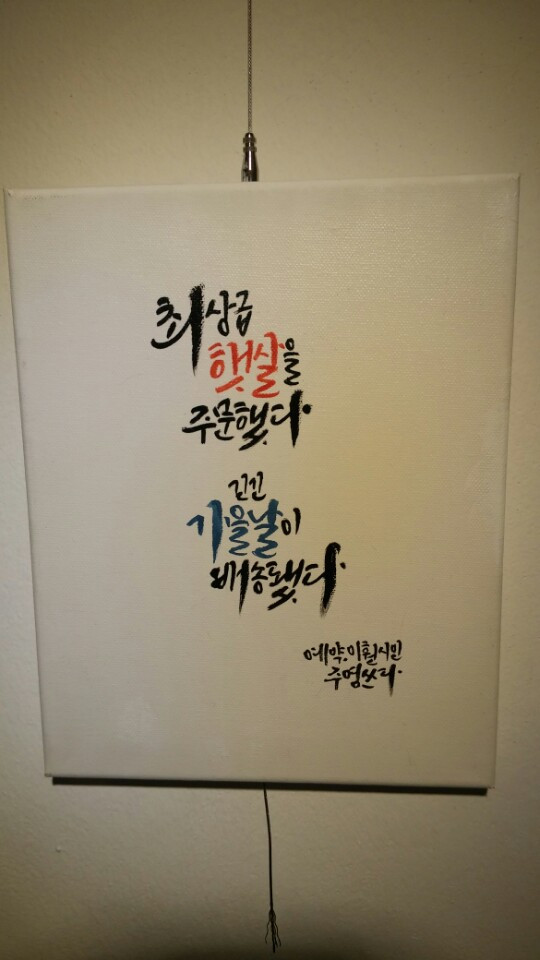 최상급
햇살을
주문했다.
긴긴
가을날이
배송됐다.
예약.이훤시인
주영쓰다.